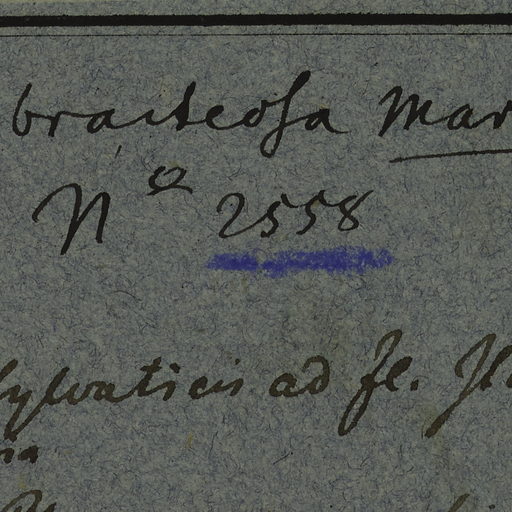 bracteosa Mar
Nº 2558
sylvaticis ad fl.